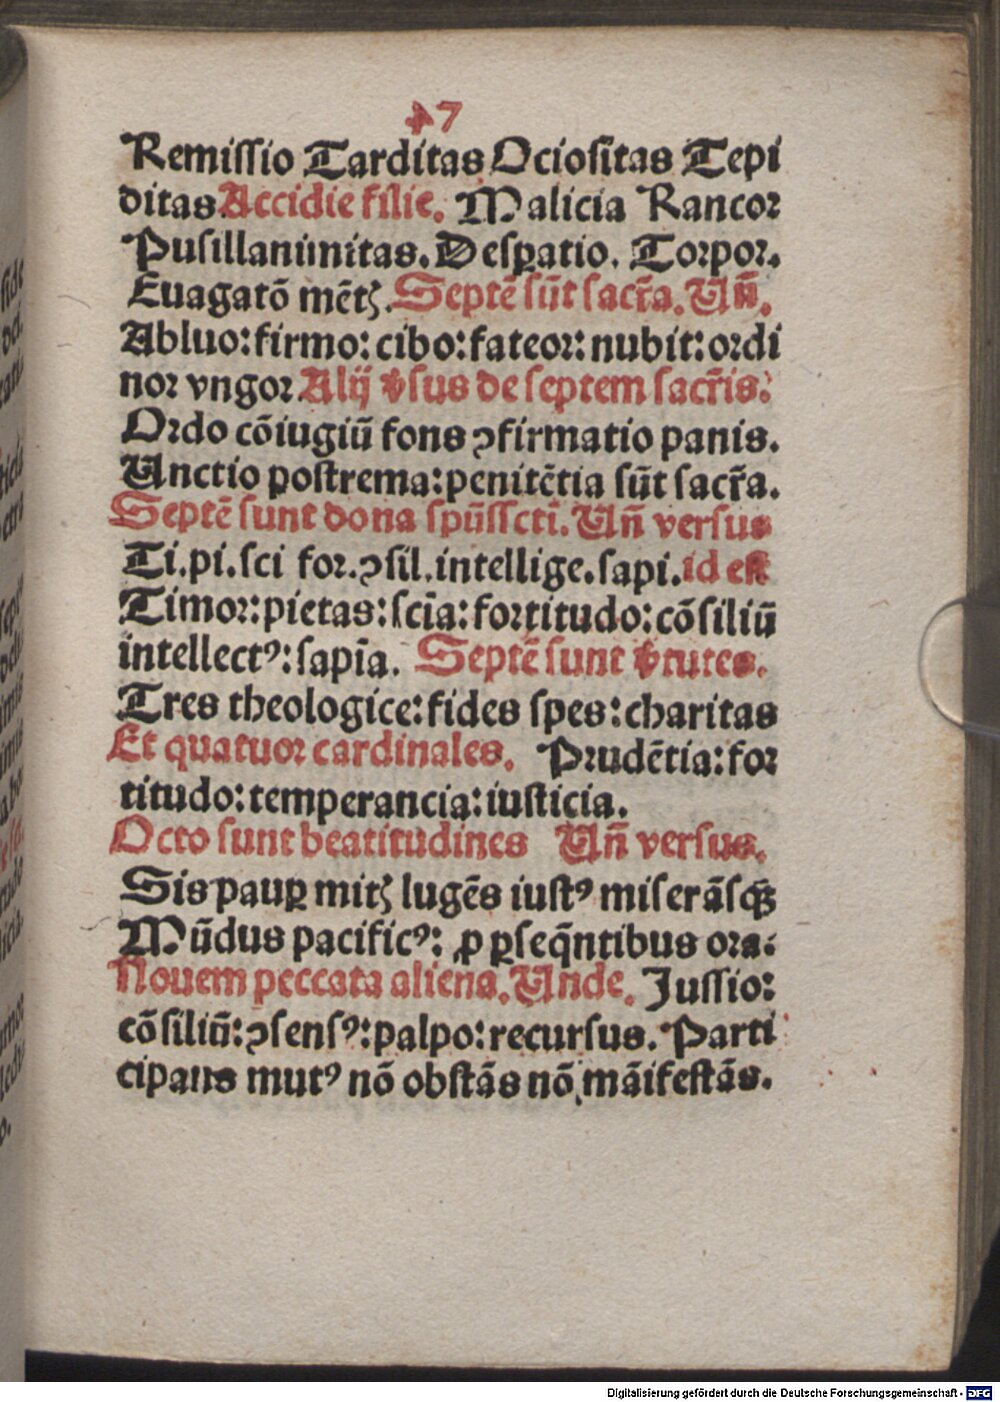 47
Remissio Tarditas Ociositas Tepi
ditas Accidie filie. Malicia Rancor
Pusillanimitas. Desꝑatio. Torpor.
Euagatō mētꝫ. Septē sūt sacr̄a. Un̄.
Abluo: firmo: cibo: fateor: nubit: ordi
nor vngor. Alij ꝟsus de septem sacr̄is.
Ordo cōiugiū fons ꝯfirmatio panis.
Unctio postrema: penitētia sūt sacr̄a.
Septē sunt dona spūssctī. Un̄ versus
Ti. pi. sci for. ꝯsil. intellige. sapi. id est
Timor: pietas: scīa: fortitudo: cōsiliū
intellectꝰ: sapīa. Septē sunt ꝟtutes.
Tres theologice: fides spes: charitas
Et quatuor cardinales. Prudētia: for
titudo: temperancia: iusticia.
Octo sunt beatitudines Un̄ versus.
Sis pauꝑ mitꝫ lugēs iustꝰ miserāsqꝫ
Mūdus pacificꝰ: ꝓ ꝑseq̄ntibus ora:
Nouem peccata aliena. Unde. Jussio:
cōsiliū: ꝯsensꝰ: palpo: recursus. Parti
cipans mutꝰ nō obstās nō māifestās.
Digitalisierung gefördert durch die Deutsche Forschungsgemeinschaft - DFG